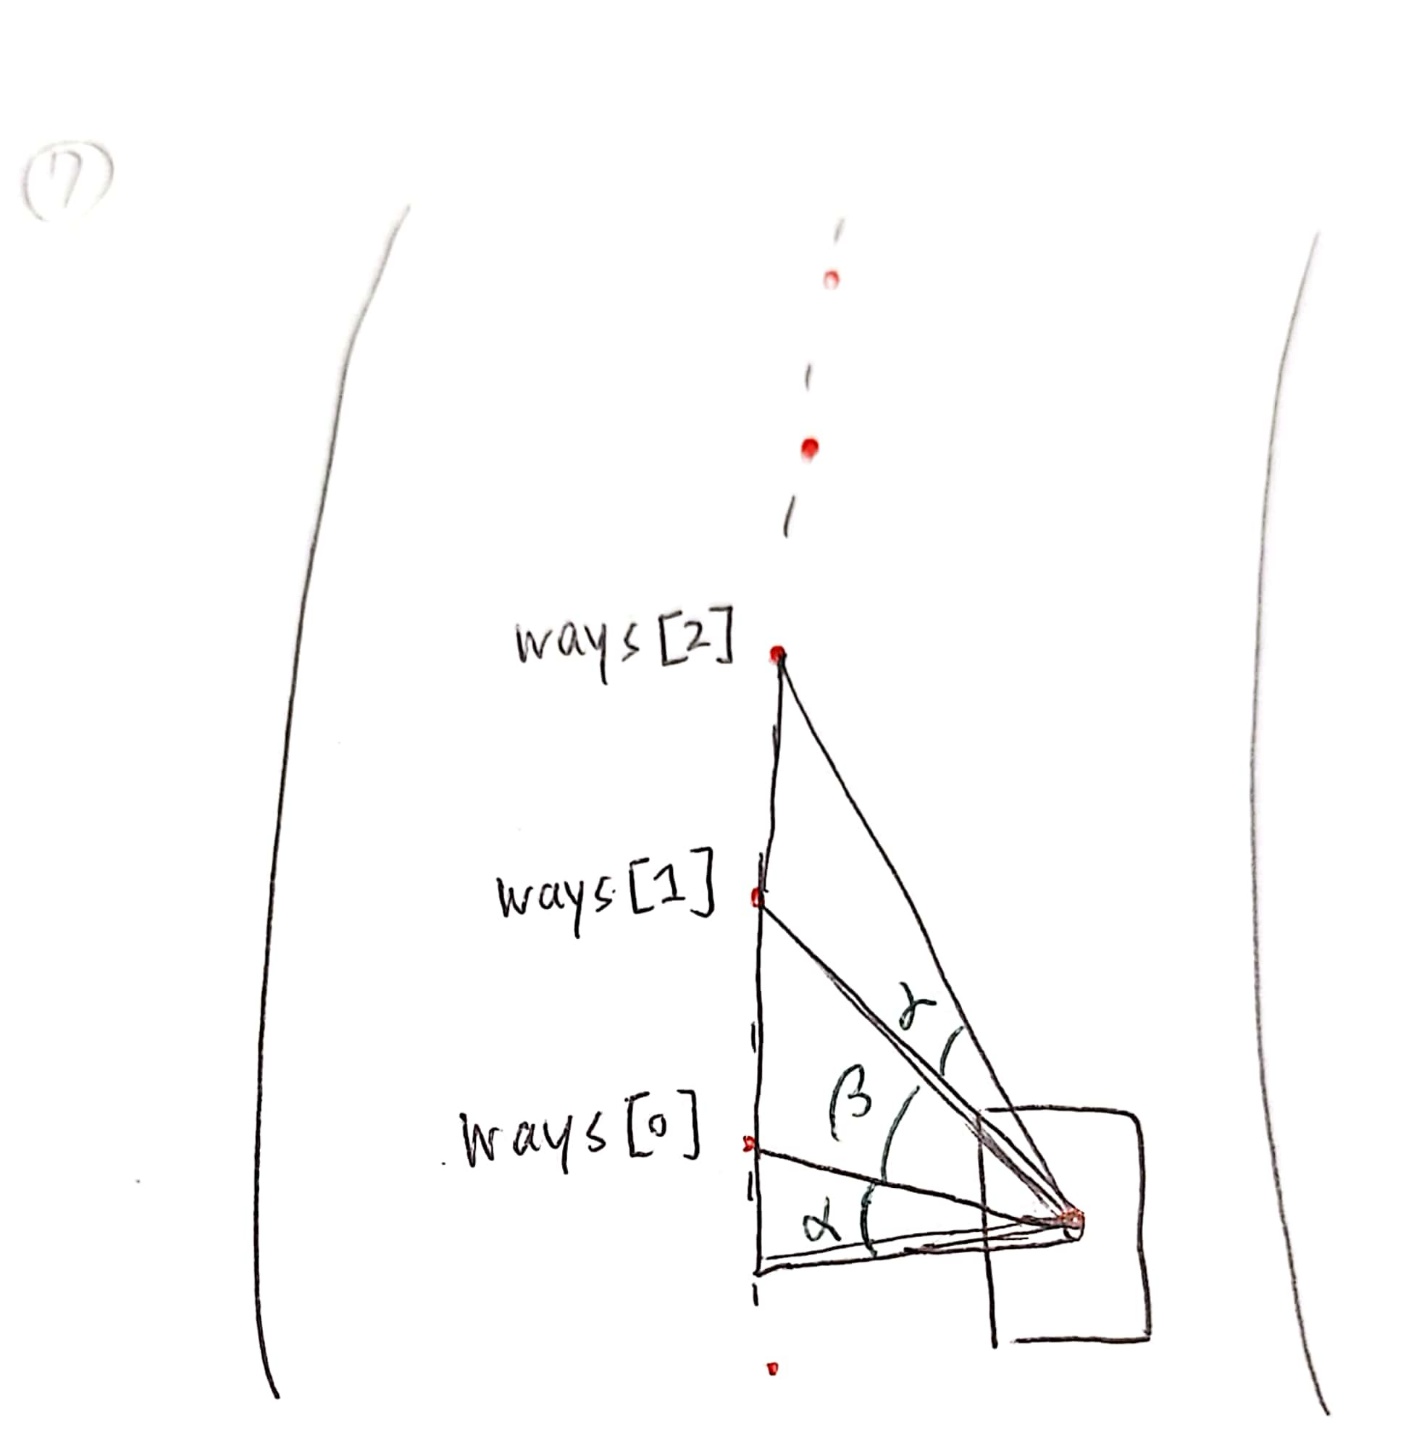 ⑦
ways[2]
ways[1]
γ
β
ways[0]
α